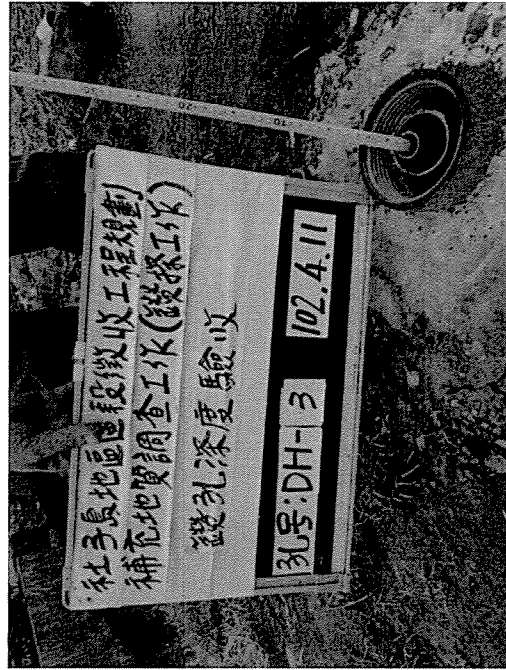 社子島地區區段徵收工程規劃
補充地質調查工作(鑽探工作)
鑽孔深度驗收
孔号:DH-13
102.4.11
10
20